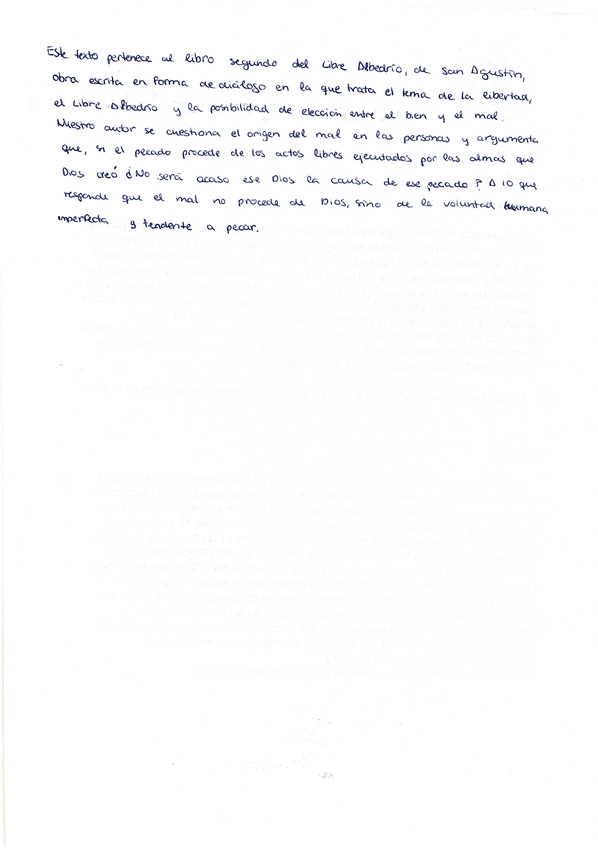 Este texto pertenece al libro segundo del Libre Albedrío, de San Agustín,
obra escrita en forma de diálogo en la que trata el tema de la libertad,
el Libre Albedrío y la posibilidad de elección entre el bien y el mal.
Nuestro autor se cuestiona el origen del mal en las personas y argumenta
que, si el pecado procede de los actos libres ejecutados por las almas que
Dios creó ¿No será acaso ese Dios la causa de ese pecado? A lo que
responde que el mal no procede de Dios, sino de la voluntad humana
imperfecta y tendente a pecar.